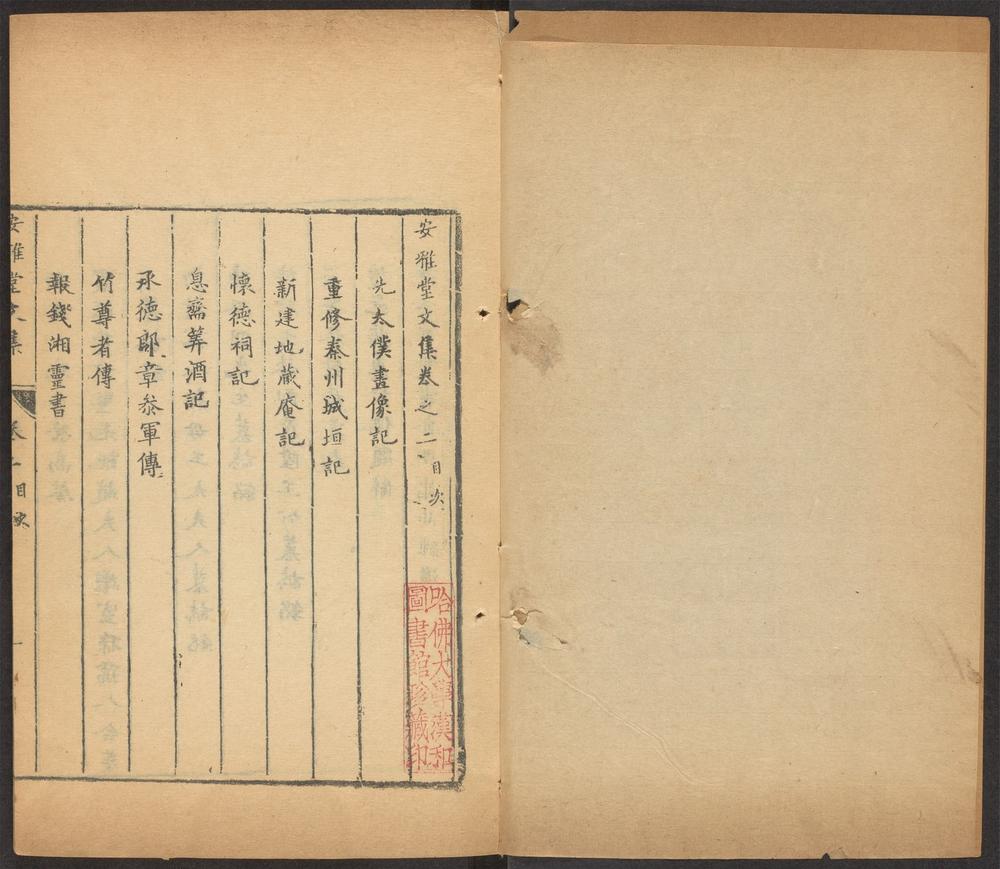 安雅堂文集卷之二 目次
先太僕畫像記
重修秦州城垣記
新建地藏庵記
懷德祠記
息齋筭酒記
承德郎章叅軍傳
竹尊者傳
報錢湘靈書
安雅堂文集 卷二 目次 一
哈佛大學漢和
圖書館珍藏印